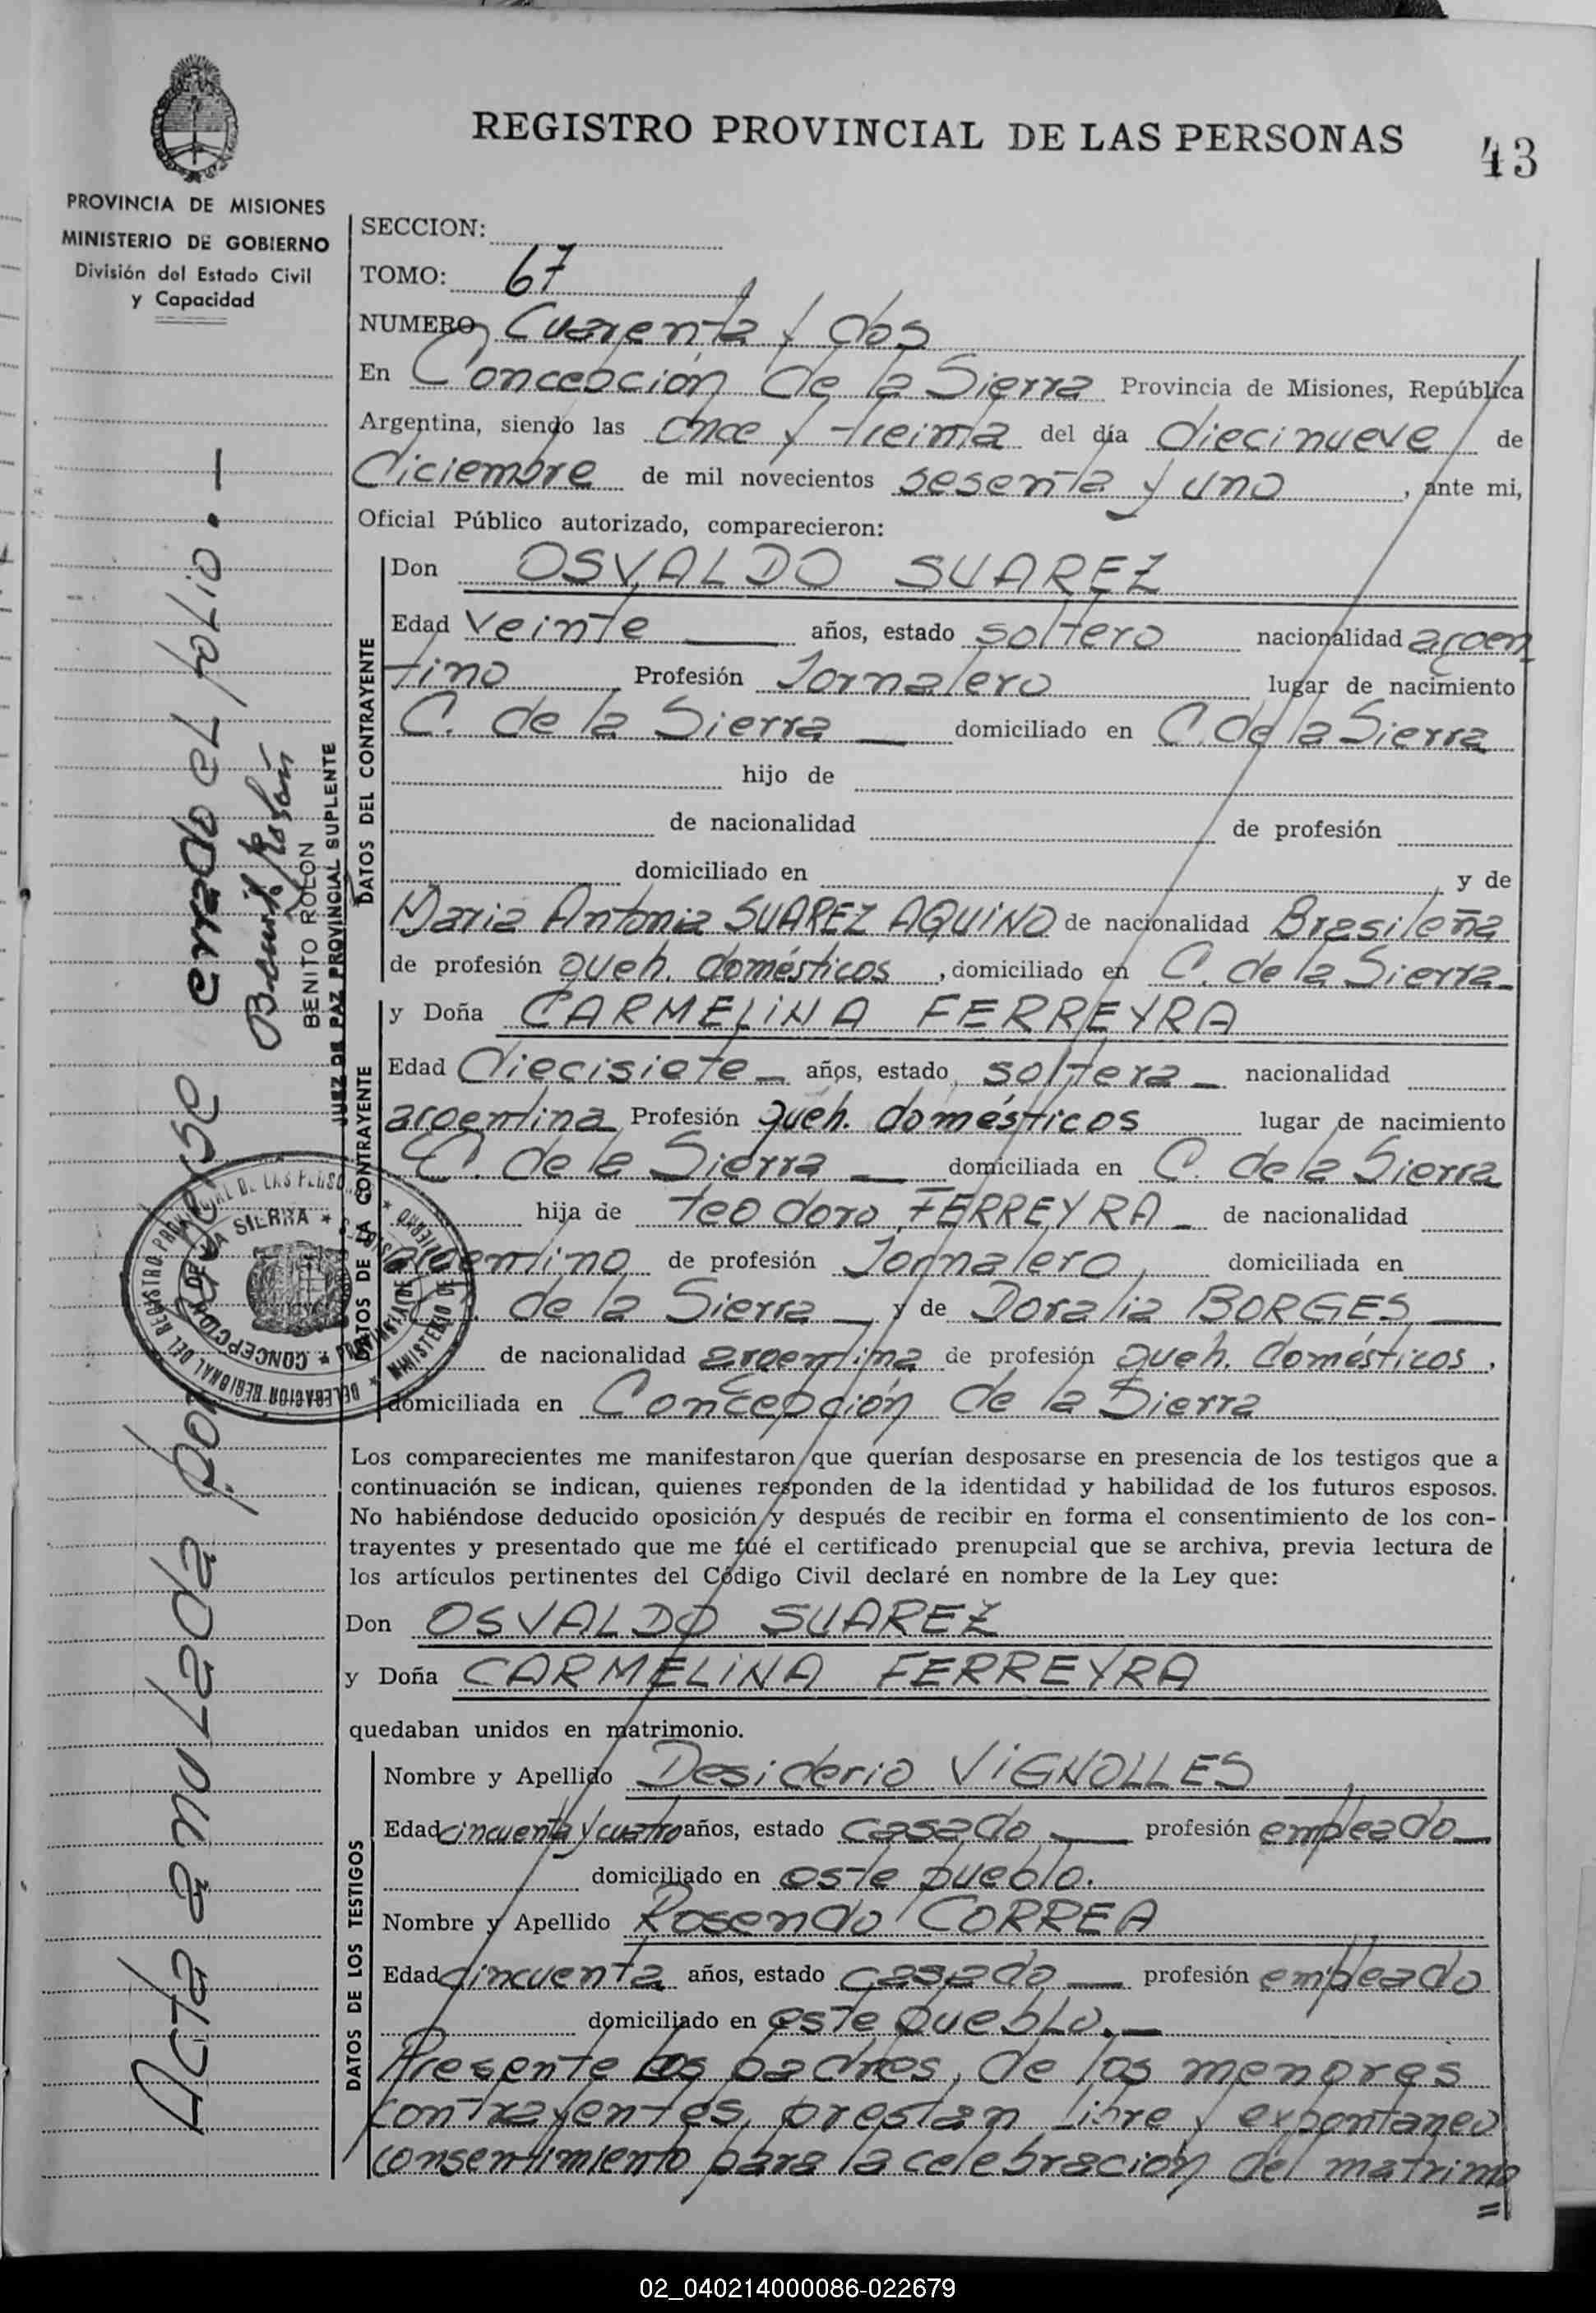 REGISTRO PROVINCIAL DE LAS PERSONAS
43
PROVINCIA DE MISIONES
MINISTERIO DE GOBIERNO
División del Estado Civil
y Capacidad
SECCION:
TOMO: 67
NUMERO Cuarenta y dos
En Concepción de la Sierra Provincia de Misiones, República
Argentina, siendo las once y treinta del día diecinueve de
diciembre de mil novecientos sesenta y uno, ante mi,
Oficial Público autorizado, comparecieron:
DATOS DEL CONTRAYENTE
Don OSVALDO SUAREZ
Edad Veinte años, estado soltero nacionalidad argen
tino Profesión Jornalero lugar de nacimiento
C. de la Sierra domiciliado en C. de la Sierra
hijo de
de nacionalidad de profesión
domiciliado en y de
Maria Antonia SUAREZ AQUINO de nacionalidad Brasileña
de profesión queh. domésticos, domiciliado en C. de la Sierra
DATOS DE LA CONTRAYENTE
y Doña CARMELINA FERREYRA
Edad Diecisiete años, estado soltera nacionalidad
argentina Profesión queh. domésticos lugar de nacimiento
C. de la Sierra domiciliada en C. de la Sierra
hija de Teodoro FERREYRA de nacionalidad
argentino de profesión Jornalero, domiciliada en
de la Sierra y de Doralia BORGES
de nacionalidad argentina de profesión queh. domésticos,
domiciliada en Concepción de la Sierra
Los comparecientes me manifestaron que querían desposarse en presencia de los testigos que a
continuación se indican, quienes responden de la identidad y habilidad de los futuros esposos.
No habiéndose deducido oposición y después de recibir en forma el consentimiento de los con-
trayentes y presentado que me fué el certificado prenupcial que se archiva, previa lectura de
los artículos pertinentes del Código Civil declaré en nombre de la Ley que:
Don OSVALDO SUAREZ
y Doña CARMELINA FERREYRA
quedaban unidos en matrimonio.
DATOS DE LOS TESTIGOS
Nombre y Apellido Desiderio VIGNOLLES
Edad cincuenta y cuatro años, estado casado profesión empleado
domiciliado en este pueblo.
Nombre y Apellido Rosendo CORREA
Edad cincuenta años, estado casado profesión empleado
domiciliado en este pueblo.
Presente los padres, de los menores
contrayentes, prestan libre y expontaneo
consentimiento para la celebración del matrimo
=
Acta anulada por haberse errado el folio.
BENITO ROLON
JUEZ DE PAZ PROVINCIAL SUPLENTE
DELEGACION REGIONAL DEL REGISTRO PROVINCIAL DE LAS PERSONAS
CONCEPCION DE LA SIERRA
MINISTERIO DE GOBIERNO
02_040214000086-022679